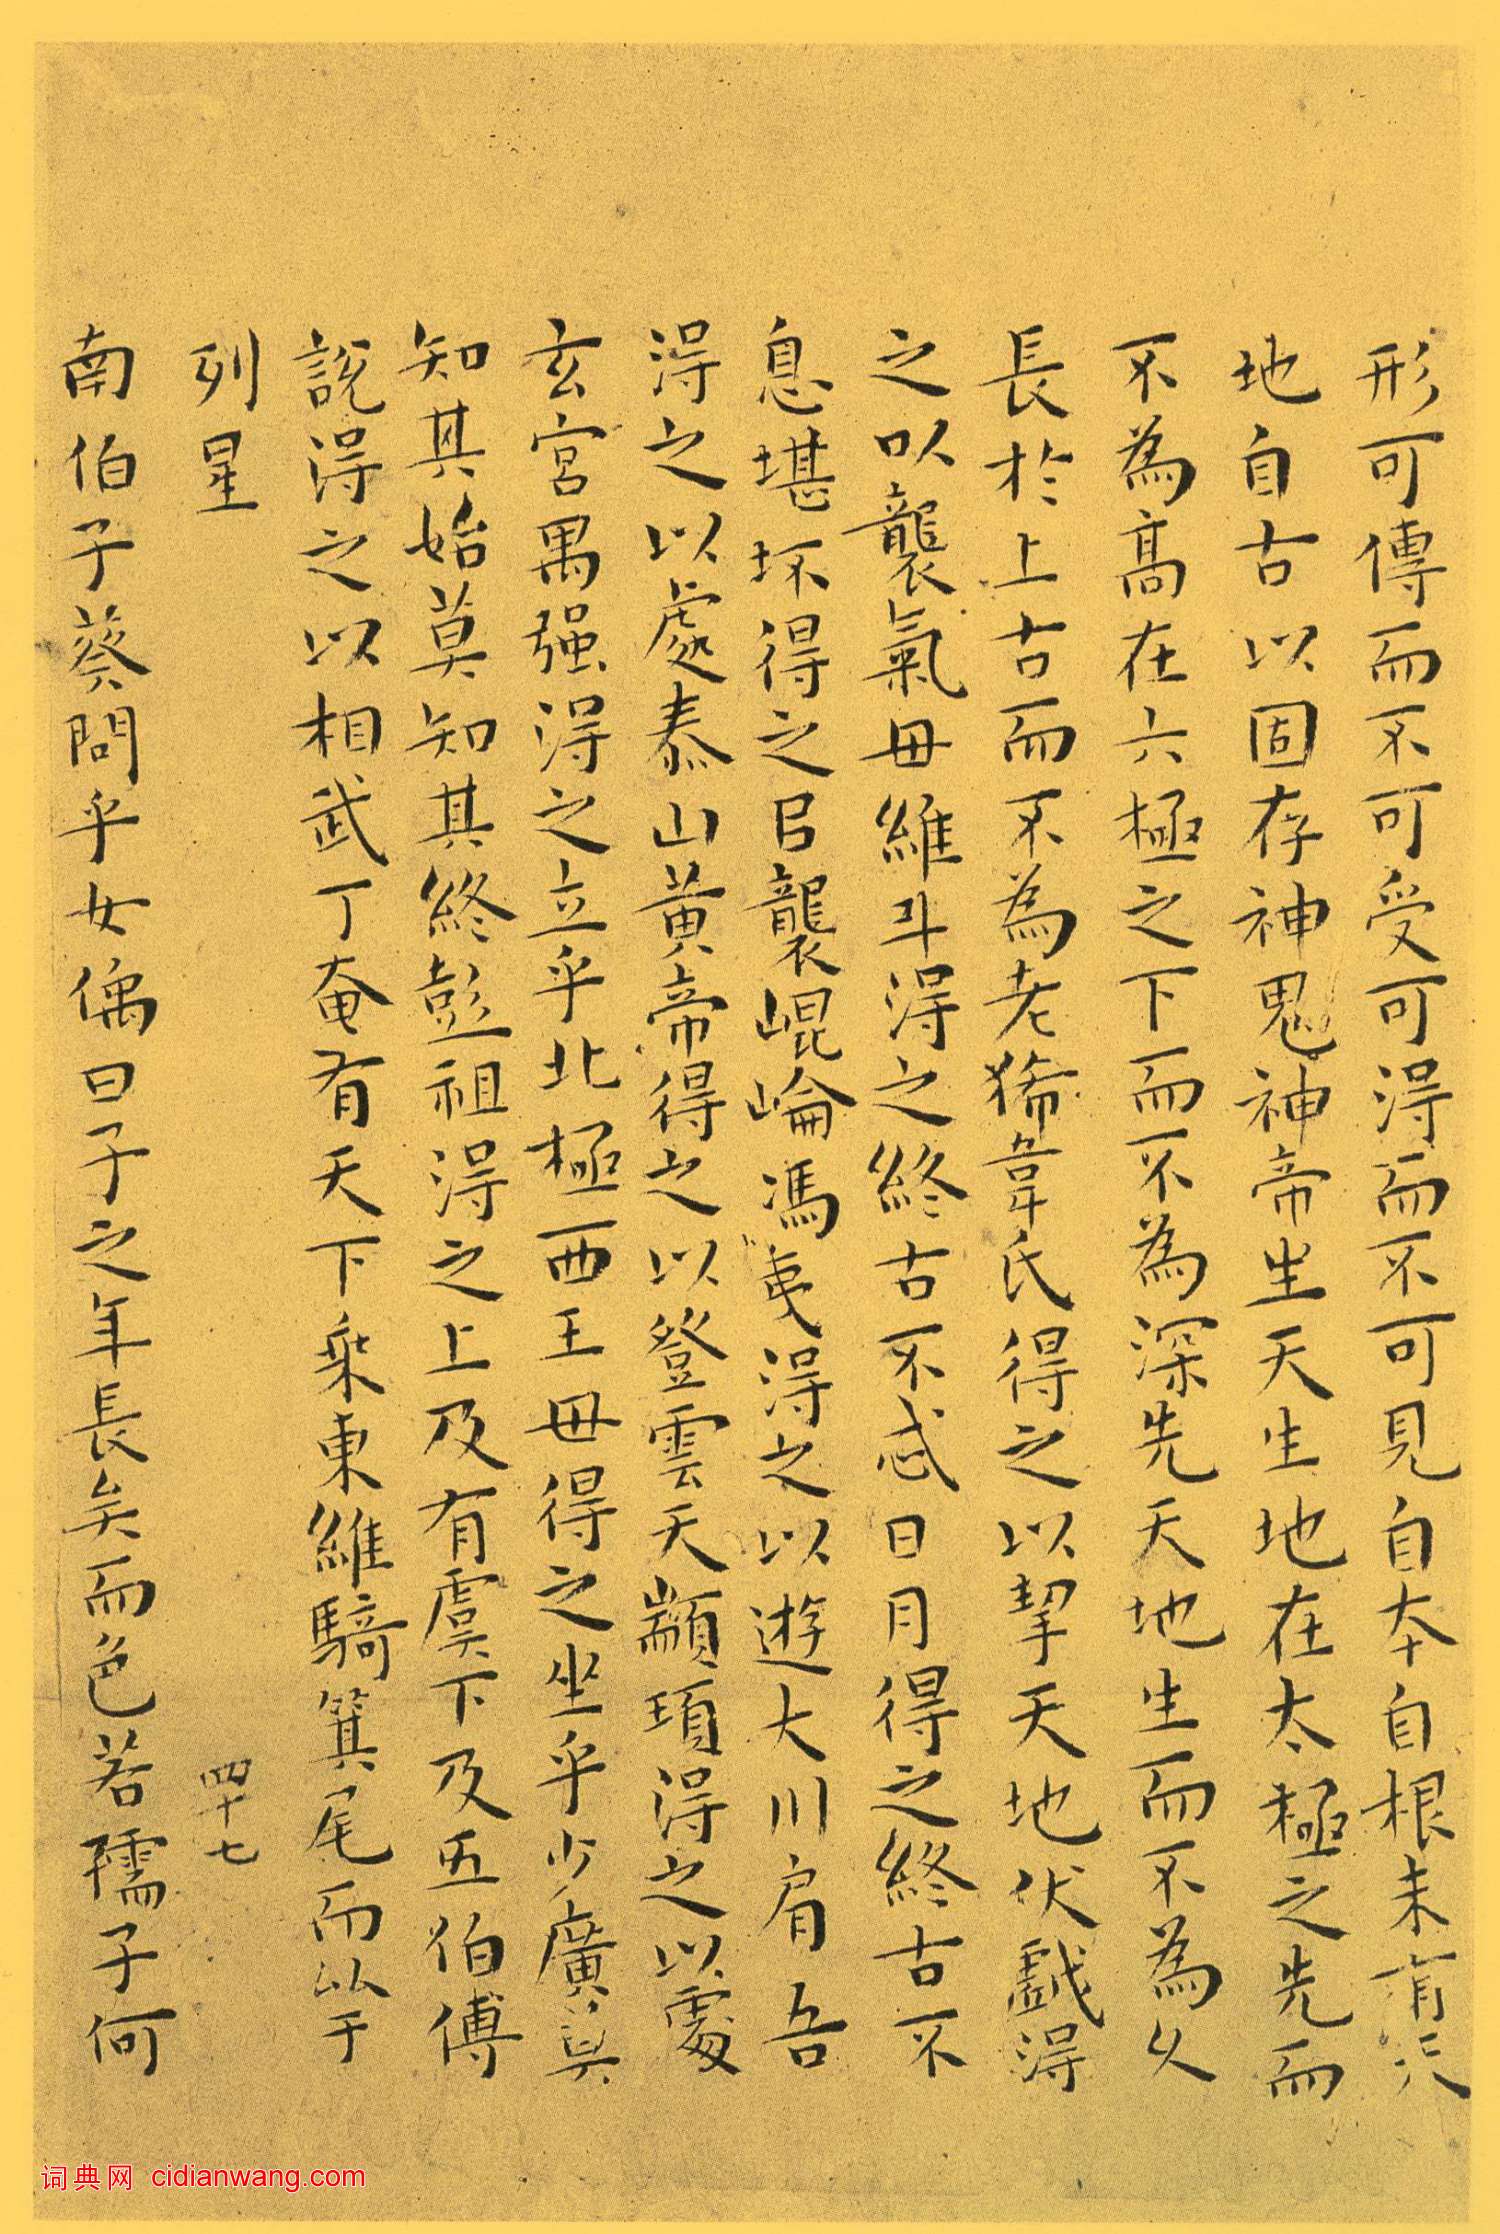 形可傳而不可受可得而不可見自本自根未有天
地自古以固存神鬼神帝生天生地在太極之先而
不為髙在六極之下而不為深先天地生而不為久
長於上古而不為老狶韋氏得之以挈天地伏戲得
之以襲氣母維斗得之終古不忒日月得之終古不
息堪坏得之㠯襲崐崘馮夷得之以遊大川肩吾
得之以處泰山黃帝得之以登雲天顓頊得之以處
玄宮禺强得之立乎北極西王母得之坐乎少廣莫
知其始莫知其終彭祖得之上及有虞下及五伯傅
說得之以相武丁奄有天下乘東維騎箕尾而以于
列星
四十七
南伯子葵問乎女偊曰子之年長矣而色若孺子何
词典网 cidianwang.com